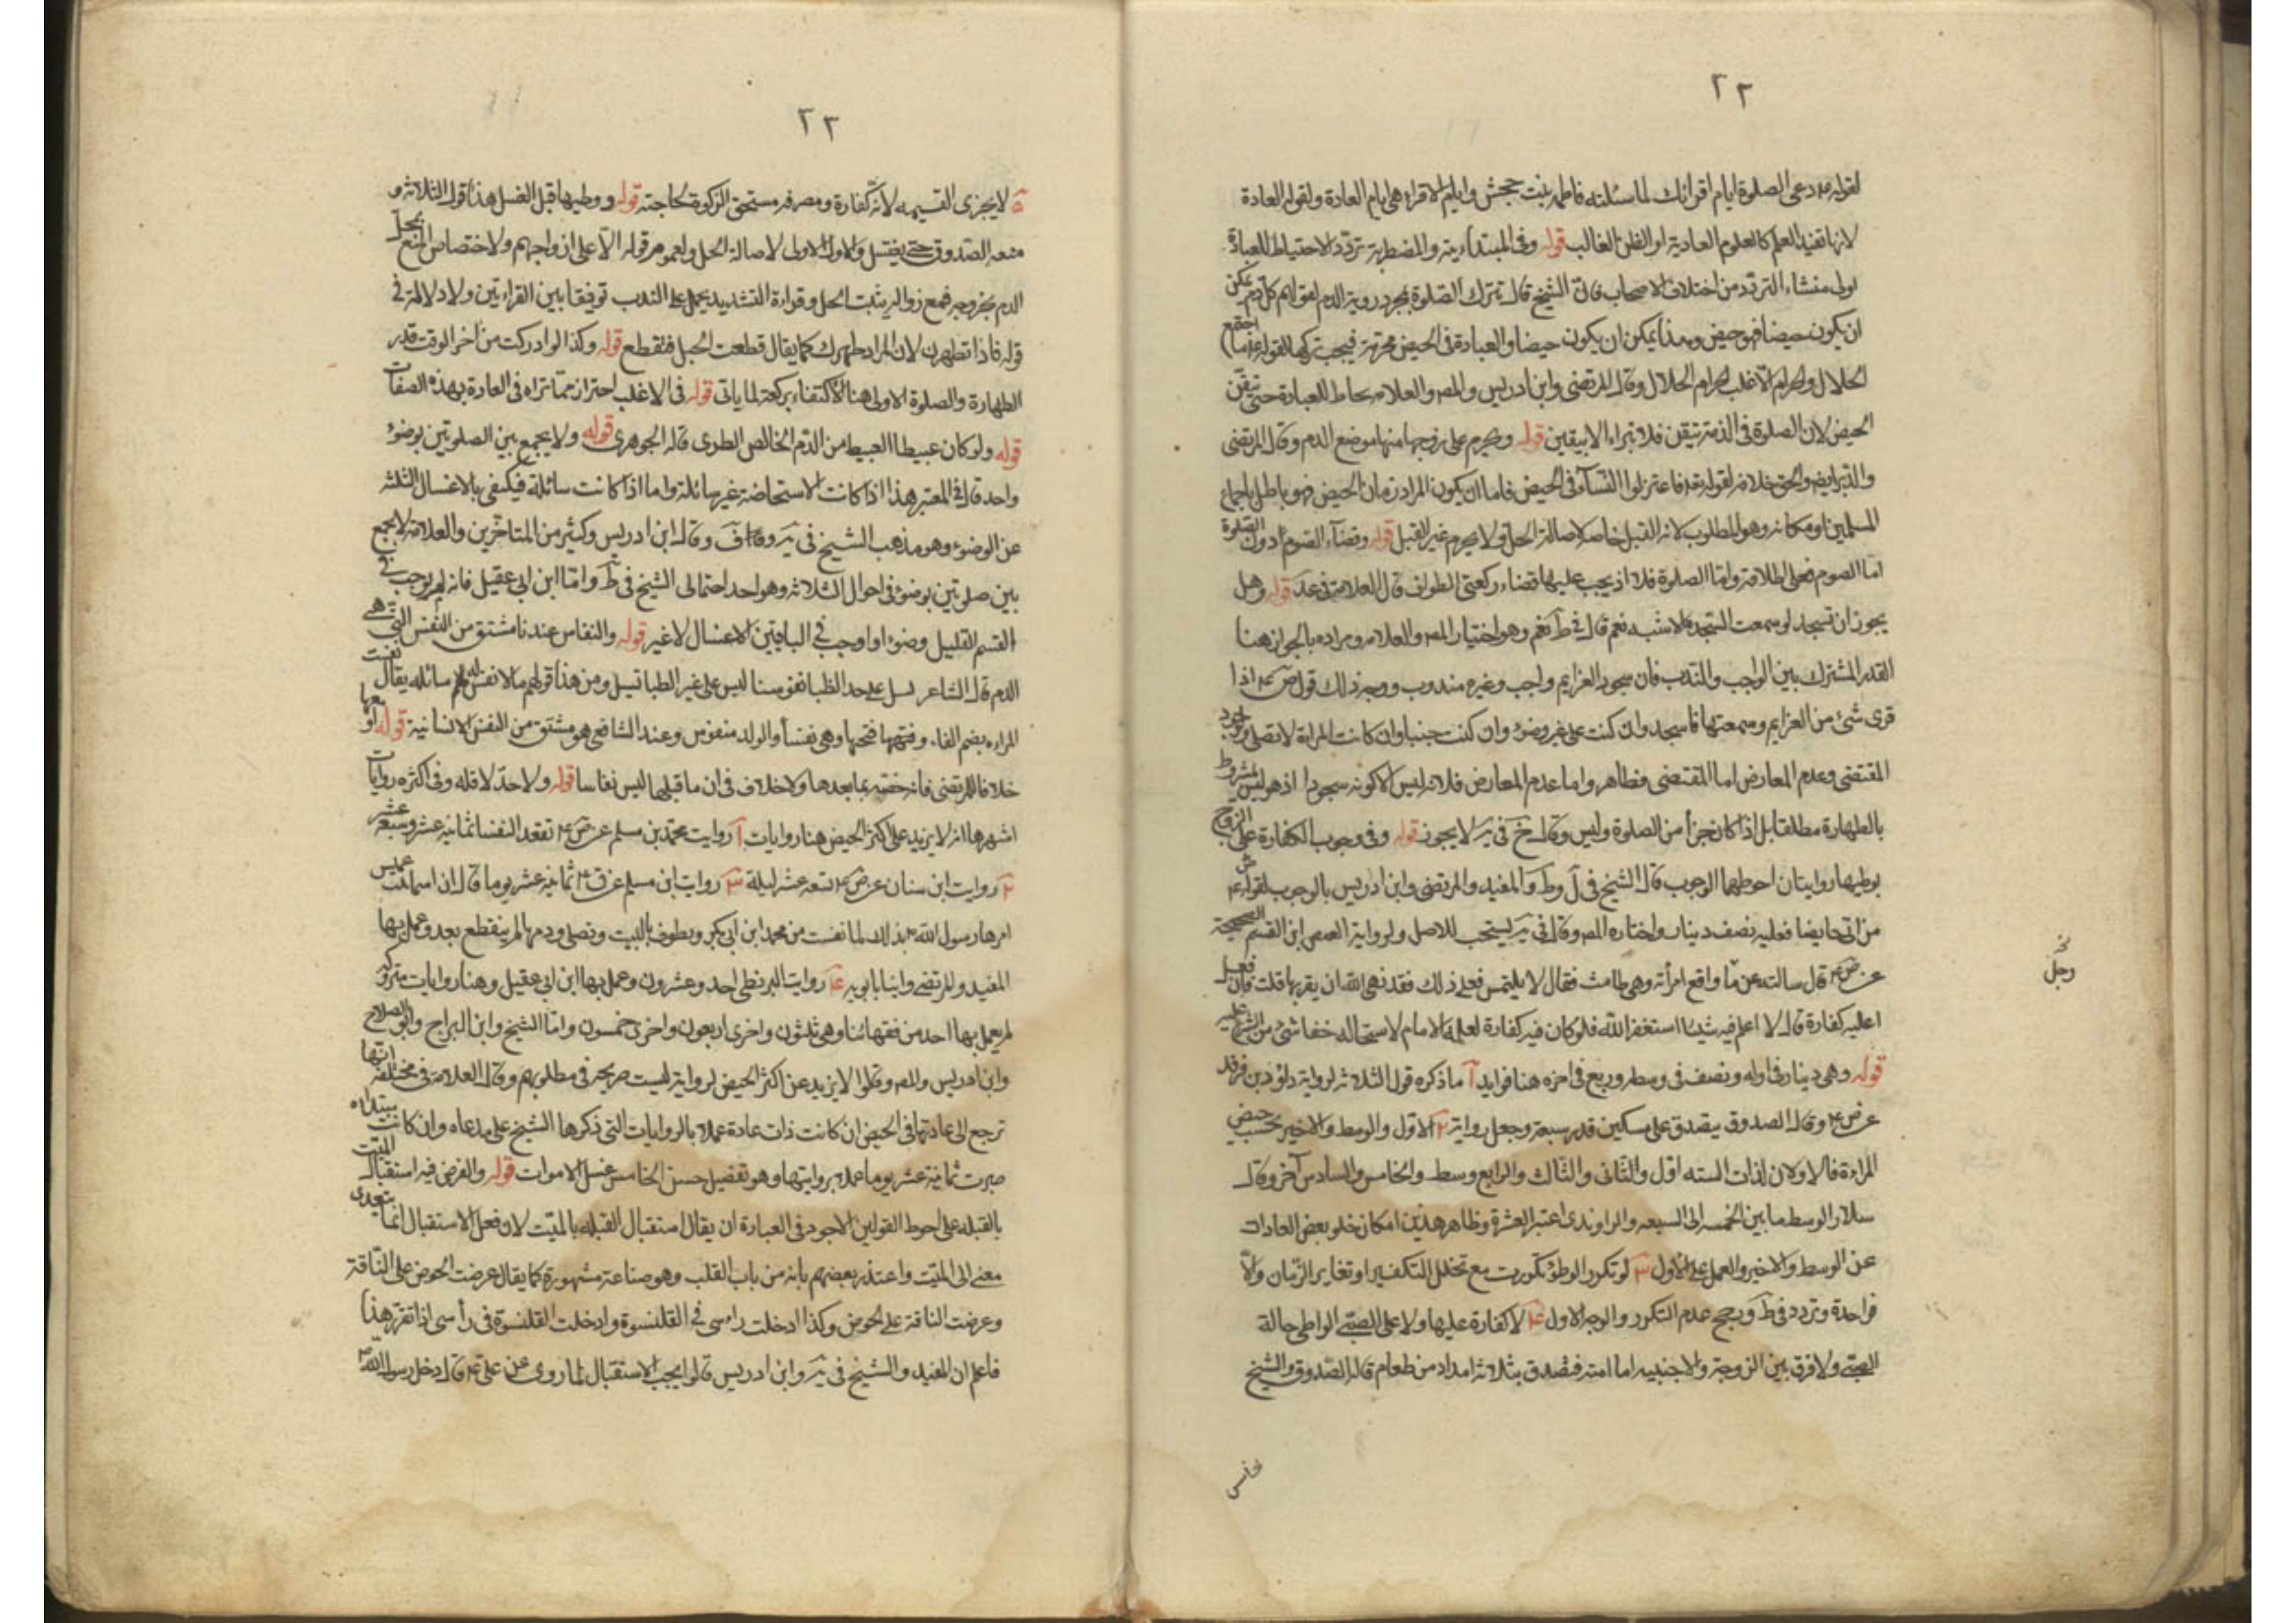 ٢٢
لقوله ع م دعى الصلوة ايام اقرائك لما سئلته فاطمه بنت جحش وايام الاقراء هى ايام العادة ولقوله العادة
لانها تفيد العلم كالعلوم العادية او الظن الغالب قوله وفى المبتداءية والمضطربة تردد الاحتياط للعبادة
اولى منشاء التردد من اختلاف الاصحاب فان الشيخ قال تترك الصلوة بمجرد روية الدم لقولهم كل دم يمكن
ان يكون حيضا فهو حيض وهذا يمكن ان يكون حيضا والعبادة فى الحيض محرمة فيجب تركها لقوله ع ما اجتمع
الحلال والحرام الا غلب الحرام الحلال وقال المرتضى وابن ادريس والمص والعلامه يحتاط للعبادة حتى تتيقن
الحيض لان الصلوة فى الذمة بيقين فلا تبراء الا بيقين قوله ويحرم على زوجها منها موضع الدم وقال المرتضى
والدبر ايضا والحق خلافه لقوله تع فاعتزلوا النسآء فى الحيض فاما ان يكون المراد زمان الحيض فهو باطل باجماع
المسلمين او مكانه وهو المطلوب لانه القبل خاصه لاصالة الحل ولا يحرم غير القبل قوله وقضاء الصوم دون الصلوة
اما الصوم فعلى اطلاقه واما الصلوة فلا اذ يجب عليها قضاء ركعتى الطواف قال العلامة فى عد قوله وهل
يجوز ان تسجد لو سمعت السجدة الاشبه نعم قال فى ط نعم وهو اختيار المص والعلامه ومراده بالجواز هنا
القدر المشترك بين الواجب والندب فان سجود العزايم واجب وغيره مندوب ووجه ذلك قول ص ع م اذا
قرى شئ من العزايم وسمعتها فاسجد وان كنت على غير وضوء وان كنت جنبا وان كانت المراة لا تصلى ولوجود
المقتضى وعدم المعارض اما المقتضى فظاهر واما عدم المعارض فلانه ليس الا كونه سجودا اذ هو ليس بمشروط
بالطهارة مطلقا بل اذا كان جزأ من الصلوة وليس وقال خ فى ية لا يجوز قوله وفى وجوب الكفارة على الزوج
بوطيها روايتان احوطهما الوجوب قال الشيخ فى ل وط والمفيد والمرتضى وابن ادريس بالوجوب لقوله ع م
من اتى حايضا فعليه نصف دينار واختاره المص وقال فى ية يستحب للاصل ولرواية العيص ابن القسم الصحيحة
عن ص ع م قال سالته عن ما واقع امرأته وهى طامث فقال لا يلتمس فعل ذلك فقد نهى الله ان يقربها قلت فان فعل
اعليه كفارة قال لا اعلم فيه شيئا استغفر الله فلو كان فيه كفارة لعلمه الامام لاستحاله خفا شئ من الشرع عليه
قوله وهى دينار فى اوله ونصف فى وسطه وربع فى اخره هنا فوايد آ ما ذكره قول الثلاثه لرواية داود بن فرقد
عن ص ع م وقال الصدوق يتصدق على مسكين قدر سبعة وجعل رواية ٢ الاول والوسط والاخير بحسب حيض
المراءة فالاولان لذات السته اول والثانى والثالث والرابع وسط والخامس والسادس آخر وقال
سلار الوسط ما بين الخمسه الى السبعه والراوندى اعتبر العشرة وظاهر هذين امكان خلو بعض العادات
عن الوسط والاخير والعمل على الاول ٣ لو تكرر الوطؤ تكررت مع تخلل التكفير او تغاير الزمان والا
فواحدة وتردد فى ط ورجح عدم التكرر والوجه الاول ٤ لا كفارة عليها ولا على الصبى الواطى حالة
الصبى ولا فرق بين الزوجة والاجنبيه اما امته فتصدق بثلاثة امداد من طعام قاله الصدوق والشيخ
نخ
رجل
٢٣
٥ لا يجزى القيمه لانه كفارة ومصرفه مستحق الزكوة لحاجته قوله ووطيها قبل الغسل هذا قول الثلاثه و
منعه الصدوق حتى يغتسل والاول اولى لاصالة الحل ولعموم قوله الا على ازواجهم ولاختصاص المنع بمحل
الدم بخروجه فمع زواله يثبت الحل وقراءة التشديد يحمل على الندب توفيقا بين القراءتين ولا دلالة فى
قوله فاذا تطهرن لان المراد طهرن كما يقال قطعت الحبل فتقطع قوله وكذا لو ادركت من اخر الوقت قدر
الطهارة والصلوة الاولى هنا الاكتفاء بركعة لما ياتى قوله فى الاغلب احتراز مما تراه فى العادة بهذه الصفات
قوله ولو كان عبيطا العبيط من الدم الخالص الطرى قاله الجوهرى قوله ولا يجمع بين الصلوتين بوضوء
واحد قال فى المعتبر هذا اذا كانت الاستحاضة غير سائلة واما اذا كانت سائلة فيكفى بالاغسال الثلثه
عن الوضوء وهو مذهب الشيخ فى ية وقال ابن ادريس وكثير من المتاخرين والعلامة لا يجمع
بين صلوتين بوضوء فى احوال الثلاثه وهو احد احتمالى الشيخ فى ط واما ابن ابى عقيل فانه لم يوجب فى
القسم القليل وضوءا واوجب فى الباقيتين الاغسال لا غير قوله والنفاس عندنا مشتق من النفس التى هى
الدم قال الشاعر تسل على حد الظبا نفوسنا ليس على غير الظبا تسيل ومن هذا قولهم ما لا نفس له سائله يقال نفست
المراءه بضم الفاء وفتحها وهى نفسأ والولد منفوس وعند الشافعى هو مشتق من النفس الانسانية قوله او معها
خلافا للمرتضى فانه خصه بما بعدها ولا خلاف فى ان ما قبلها ليس نفاسا قوله ولا حد لاقله وفى اكثره روايات
اشهرها انه لا يزيد على اكثر الحيض هنا روايات آ روايت محمد بن مسلم عن ص ع م تقعد النفسا ثمانيه عشر وسبعه عشر
٢ روايت ابن سنان عن ص ع م تسعه عشر ليلة ٣ روايت ابن مسلم عن ق ع م ثمانيه عشر يوما قال ان اسما بنت عميس
امرها رسول الله ص بذلك لما نفست من محمد ابن ابى بكر ويطوف بالبيت وتصلى ودمها لم ينقطع بعد وعمل بها
المفيد والمرتضى وابنا بابويه ٤ روايت البزنطى احد وعشرون وعمل بها ابن ابى عقيل وهنا روايات متروكه
لم يعمل بها احد من فقهائنا وهى ثلثون واخرى اربعون واخرى خمسون واما الشيخ وابن البراج وابو الصلاح
وابن ادريس والمص وقالوا لا يزيد عن اكثر الحيض لرواية ليست صريحة فى مطلوبهم وقال العلامة فى مختلفه انها
ترجع الى عادتها فى الحيض ان كانت ذات عادة عملا بالروايات التى ذكرها الشيخ على مدعاه وان كانت مبتداه
صبرت ثمانية عشر يوما عملا بروايتها وهو تفضيل حسن الخامس غسل الاموات قوله والفرض فيه استقبال الميت
بالقبله على احوط القولين الاجود فى العبارة ان يقال استقبال القبله بالميت لان فعل الاستقبال انما يتعدى
معنى الى الميت واعتذر بعضهم بانه من باب القلب وهو صناعة مشهورة كما يقال عرضت الحوض على الناقة
وعرضت الناقة على الحوض وكذا ادخلت راءسى فى القلنسوة وادخلت القلنسوة فى رأسى اذا تقرر هذا
فاعلم ان المفيد والشيخ فى ية وابن ادريس قالوا يجب الاستقبال لما روى عن على ع م قال دخل رسول الله ص